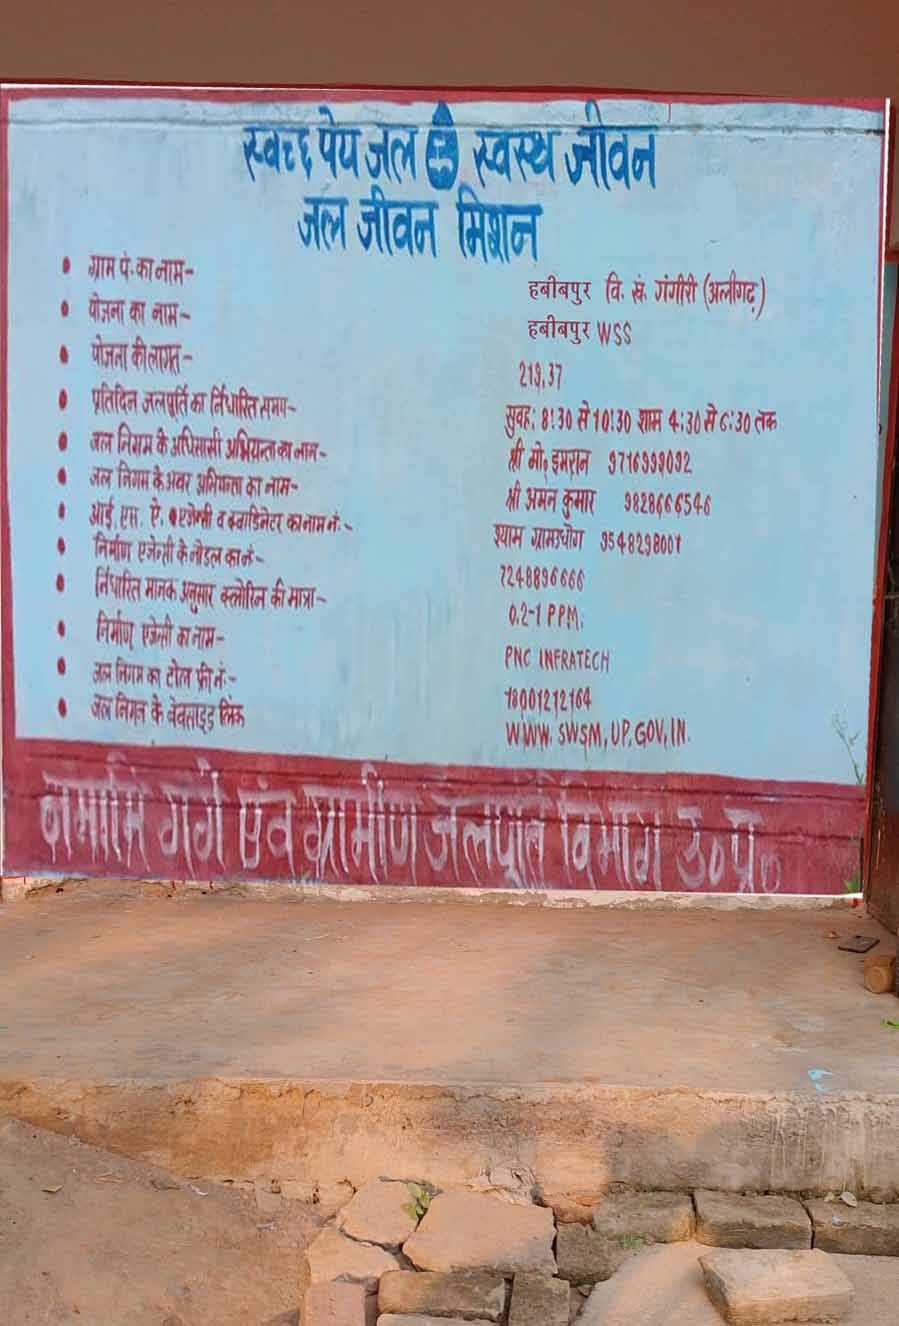 स्वच्छ पेय जल स्वस्थ जीवन
जल जीवन मिशन
• ग्राम पं. का नाम- हबीबपुर वि. खं. गंगीरी (अलीगढ़)
• योजना का नाम- हबीबपुर WSS
• योजना की लागत- 219.37
• प्रतिदिन जलपूर्ति का निर्धारित समय- सुवह: 8:30 से 10:30 शाम 4:30 से 6:30 तक
• जल निगम के अधिसासी अभियन्ता का नाम- श्री मो० इमरान 9716999092
• जल निगम के अवर अभियन्ता का नाम- श्री अमन कुमार 9828666546
• आई. एस. ऐ. एजेन्सी व क्वाडिनेटर का नाम नं.- श्याम ग्रामउधोग 9548298001
• निर्माण एजेन्सी के नोडल का नं- 7248896666
• निर्धारित मानक अनुसार क्लोरिन की मात्रा- 0.2-1 PPM.
• निर्माण एजेन्सी का नाम- PNC INFRATECH
• जल निगम का टोल फ्री नं:- 18001212164
• जल निगम के वेवसाइड लिंक WWW. SWSM, UP, GOV, IN.
नमामि गंगे एंव ग्रामीण जलपूर्ति विभाग उ०प्र०